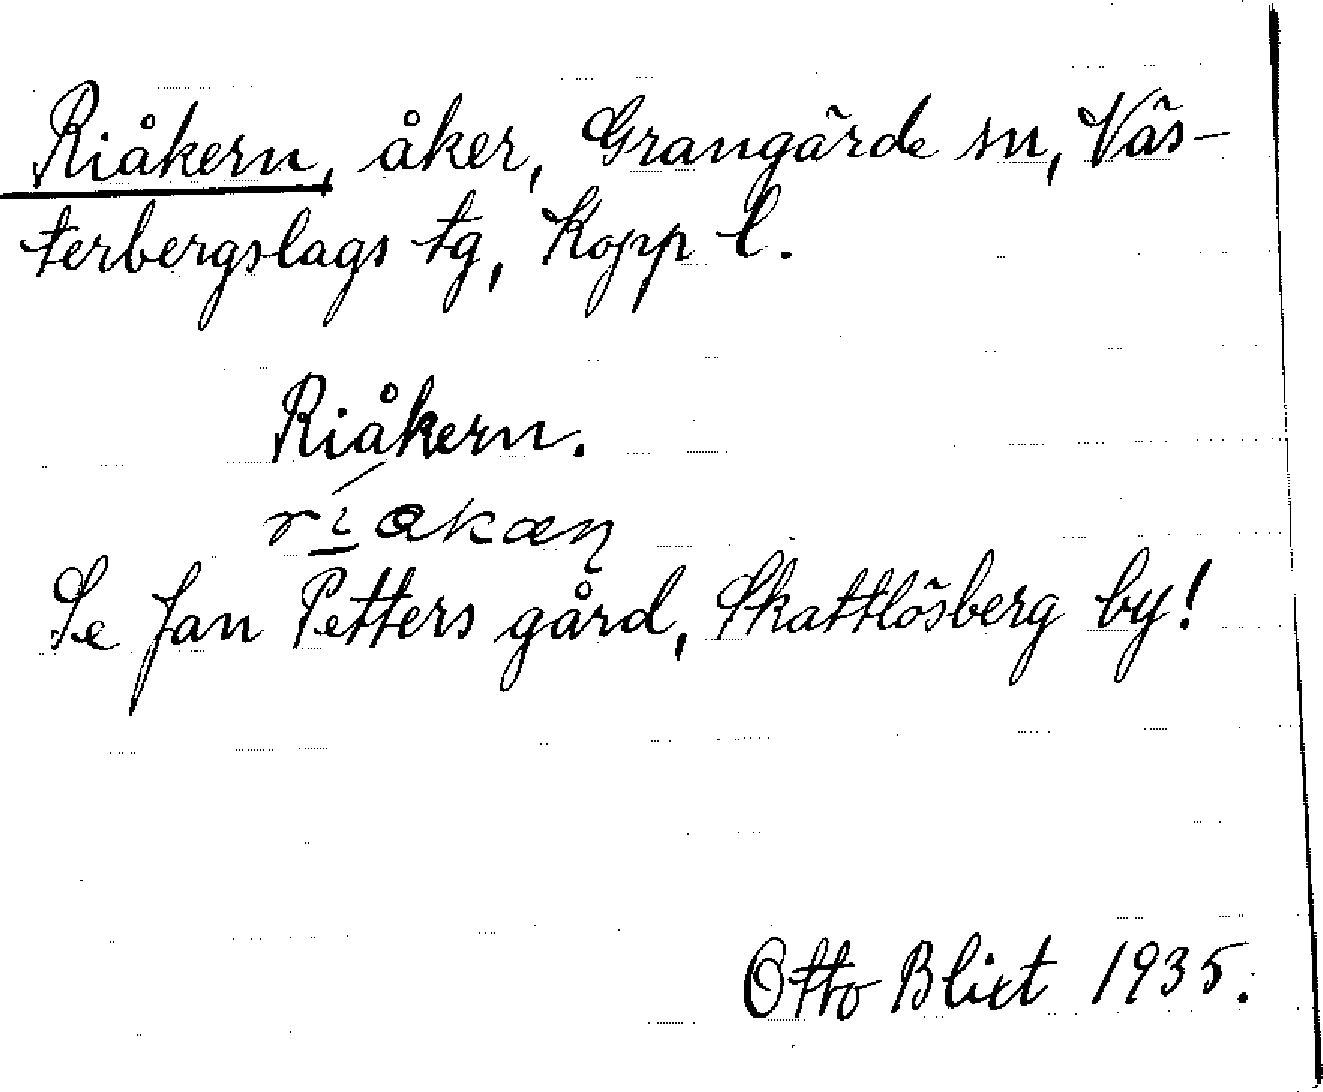 Riåkern, åker, Grangärde sn, Väs-
terbergslags tg, Kopp l.
Riåkern.
Se Jan Petters gård, Skattlösberg by!
Otto Blixt 1935.